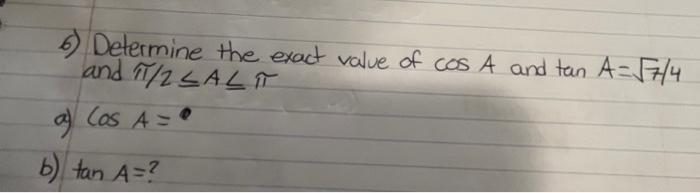 6) Determine the exact value of cos A and tan A=√7/4
and π/2 ≤ A ≤ π
a) Cos A =
b) tan A=?